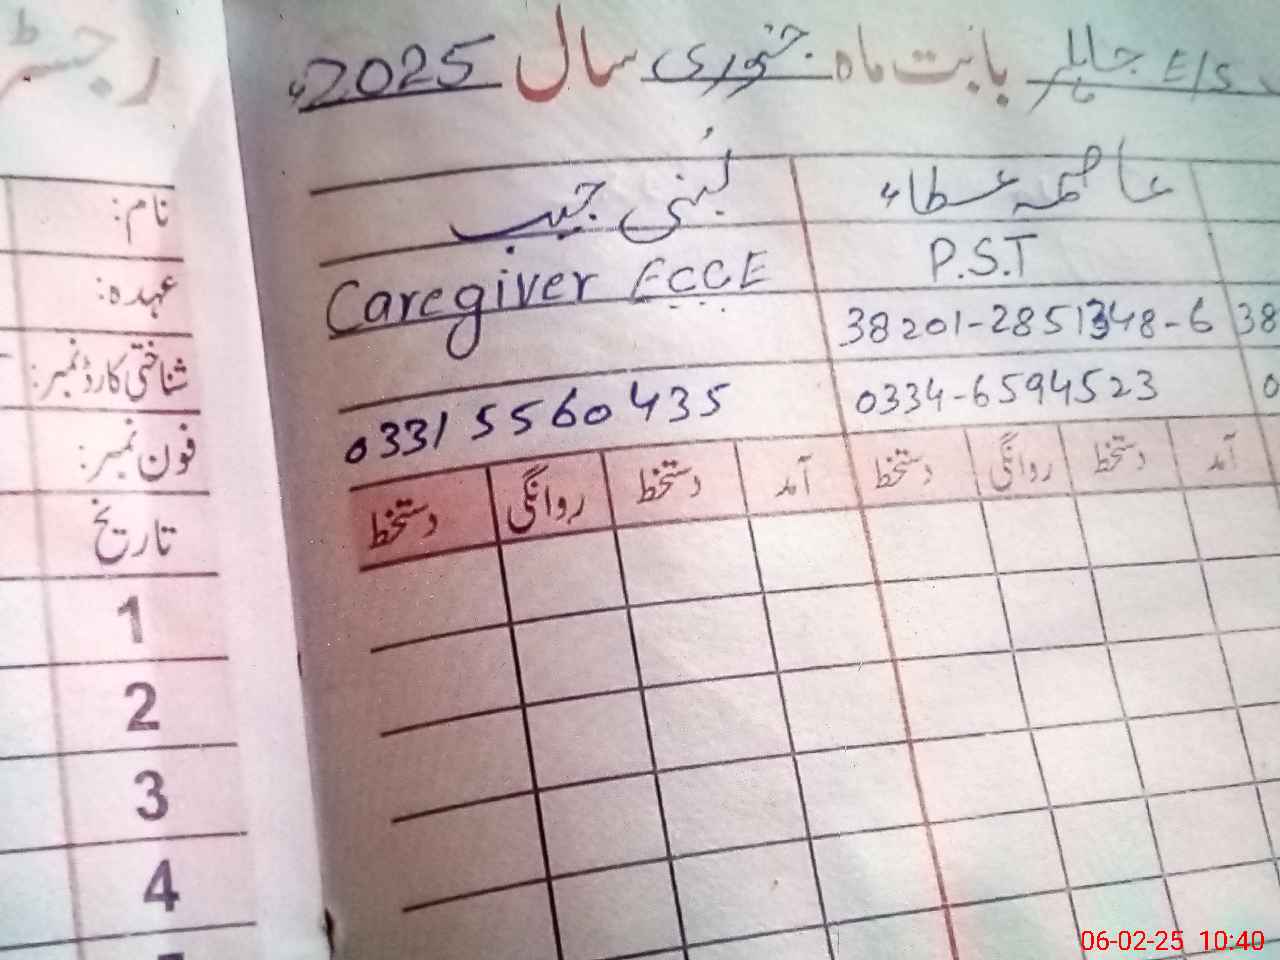 رجسٹر
E/S جاہلر بابت ماہ جنوری سال 2025ء
نام:
عہدہ:
شناختی کارڈ نمبر:
فون نمبر:
تاریخ
1
2
3
4
عاصمہ عطاء
P.S.T
38201-2851348-6
0334-6594523
آمد دستخط روانگی دستخط
لبنیٰ
Caregiver ECCE
0331 5560435
آمد دستخط روانگی دستخط
38
0
06-02-25 10:40